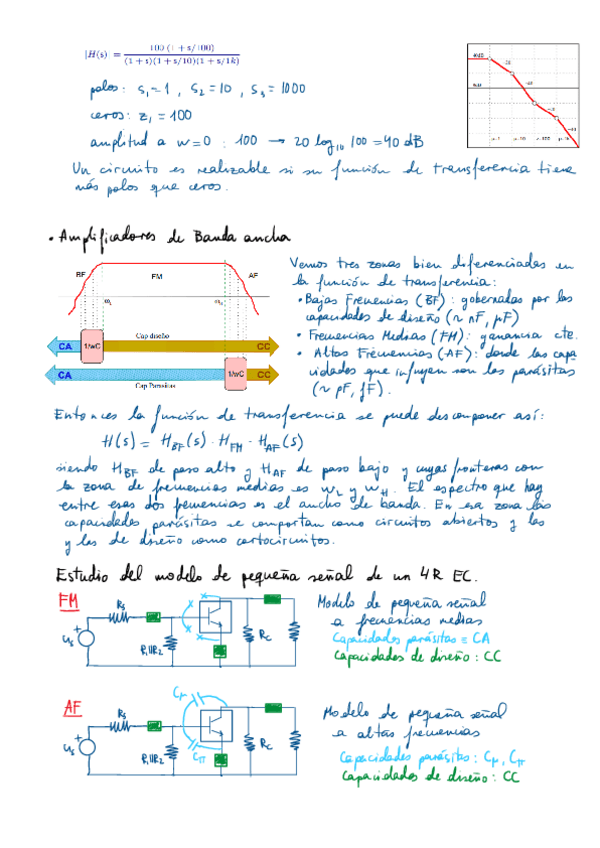 |H(s)| = 100 (1 + s/100) / (1 + s)(1 + s/10)(1 + s/1k)
polos: s₁=1, s₂=10, s₃=1000
ceros: z₁=100
amplitud a w=0 : 100 → 20 log₁₀ 100 = 40 dB
Un circuito es realizable si su función de transferencia tiene
más polos que ceros.
• Amplificadores de Banda ancha
RF FM AF
Cap diseño
CA 1/wC CC
CA 1/wC CC
Cap Parasitas
Vemos tres zonas bien diferenciadas en
la función de transferencia:
• Bajas Frecuencias (BF): gobernadas por las
capacidades de diseño (~ nF, µF)
• Frecuencias Medias (FM): ganancia cte.
• Altas Frecuencias (AF): donde las capa
cidades que influyen son las parásitas
(~ pF, fF).
Entonces la función de transferencia se puede descomponer así:
H(s) = H_BF(s) · H_FM · H_AF(s)
siendo H_BF de paso alto y H_AF de paso bajo y cuyas fronteras con
la zona de frecuencias medias es w_L y w_H. El espectro que hay
entre esas dos frecuencias es el ancho de banda. En esa zona las
capacidades parásitas se comportan como circuitos abiertos y las
y las de diseño como cortocircuitos.
Estudio del modelo de pequeña señal de un 4R EC.
FM
Rs
us
R₁||R₂
Rc
Modelo de pequeña señal
a frecuencias medias
Capacidades parásitas = CA
Capacidades de diseño: CC
AF
Rs
Cµ
us
R₁||R₂
Cπ
Rc
Modelo de pequeña señal
a altas frecuencias
Capacidades parásitas: Cµ, Cπ
Capacidades de diseño: CC